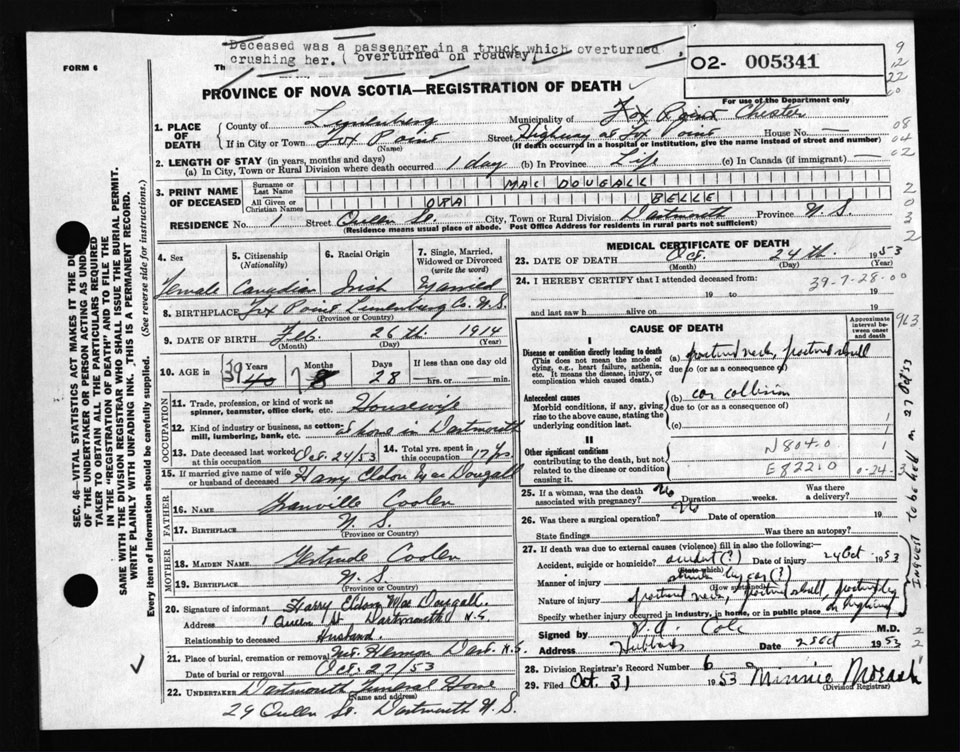 Deceased was a passenger in a truck which overturned
crushing her. ( overturned on roadway)
FORM 6
Th
02- 005341
For use of the Department only
PROVINCE OF NOVA SCOTIA—REGISTRATION OF DEATH
1. PLACE OF DEATH
County of Lunenburg
Municipality of Fox Point Chester
If in City or Town Fox Point (Name)
Street Highway at Fox Point House No. —
(If death occurred in a hospital or institution, give the name instead of street and number)
2. LENGTH OF STAY (in years, months and days)
(a) In City, Town or Rural Division where death occurred 1 day (b) In Province Life (c) In Canada (if immigrant) —
3. PRINT NAME OF DECEASED
Surname or Last Name MAC DOUGALL
All Given or Christian Names ORA BELLE
RESIDENCE No. 1 Street Queen St. City, Town or Rural Division Dartmouth Province N.S.
(Residence means usual place of abode. Post Office Address for residents in rural parts not sufficient)
4. Sex Female
5. Citizenship (Nationality) Canadian
6. Racial Origin Irish
7. Single, Married, Widowed or Divorced (write the word) Married
8. BIRTHPLACE Fox Point Lunenburg Co. N.S.
(Province or Country)
9. DATE OF BIRTH Feb. 26th 1914
(Month) (Day) (Year)
10. AGE in 39 40 Years 7 8 Months 28 Days If less than one day
hrs. or min.
OCCUPATION
11. Trade, profession, or kind of work as spinner, teamster, office clerk, etc. Housewife
12. Kind of industry or business, as cotton-mill, lumbering, bank, etc. at home in Dartmouth
13. Date deceased last worked at this occupation Oct. 24/53
14. Total yrs. spent in this occupation 17 yrs.
15. If married give name of wife or husband of deceased Harry Eldon MacDougall
FATHER
16. NAME Granville Coolen
17. BIRTHPLACE N.S.
(Province or Country)
MOTHER
18. MAIDEN NAME Gertrude Coolen
19. BIRTHPLACE N.S.
(Province or Country)
20. Signature of informant Harry Eldon MacDougall.
Address 1 Queen St Dartmouth N.S.
Relationship to deceased Husband.
21. Place of burial, cremation or removal Mt. Hermon Dart. N.S.
Date of burial or removal Oct. 27/53
22. UNDERTAKER Dartmouth Funeral Home
(Name and address)
29 Queen St. Dartmouth N.S.
MEDICAL CERTIFICATE OF DEATH
23. DATE OF DEATH Oct. 24th. 1953
(Month) (Day) (Year)
24. I HEREBY CERTIFY that I attended deceased from:
39-7-28-00
19 to 19
and last saw h alive on 19
CAUSE OF DEATH
Approximate interval between onset and death
963
I
Disease or condition directly leading to death
(This does not mean the mode of dying, e.g., heart failure, asthenia, etc. It means the disease, injury, or complication which caused death.)
(a) fractured neck, fractured skull
due to (or as a consequence of)
Antecedent causes
Morbid conditions, if any, giving rise to the above cause, stating the underlying condition last.
(b) car collision
due to (or as a consequence of)
(c) 1
II
Other significant conditions
contributing to the death, but not related to the disease or condition causing it.
N804.0 1
E822.0 0-24-3
25. If a woman, was the death associated with pregnancy? No Duration weeks. Was there a delivery?
26. Was there a surgical operation? No Date of operation 19
State findings Was there an autopsy?
27. If death was due to external causes (violence) fill in also the following:—
Accident, suicide or homicide? accident (?) 24 Oct 1953
(State which)
Manner of injury struck by car (?)
(How sustained)
Nature of injury fractured neck, fractured skull, fractured leg
Specify whether injury occurred in industry, in home, or in public place on highway
Inquest to be held on 27 Oct 53
Signed by Cole M.D.
Address Hubbards Date 25 Oct 1953
28. Division Registrar's Record Number 6
29. Filed Oct. 31 1953 Minnie Morash
(Division Registrar)
SEC. 46—VITAL STATISTICS ACT MAKES IT THE DU
OF THE UNDERTAKER OR PERSON ACTING AS UND
TAKER TO OBTAIN ALL THE PARTICULARS REQUIRED
IN THE "REGISTRATION OF DEATH" AND TO FILE THE
SAME WITH THE DIVISION REGISTRAR WHO SHALL ISSUE THE BURIAL PERMIT.
WRITE PLAINLY WITH UNFADING INK. THIS IS A PERMANENT RECORD.
Every item of information should be carefully supplied. (See reverse side for instructions.)
9
12
22
60
08
04
02
2
0
3
2
2
2